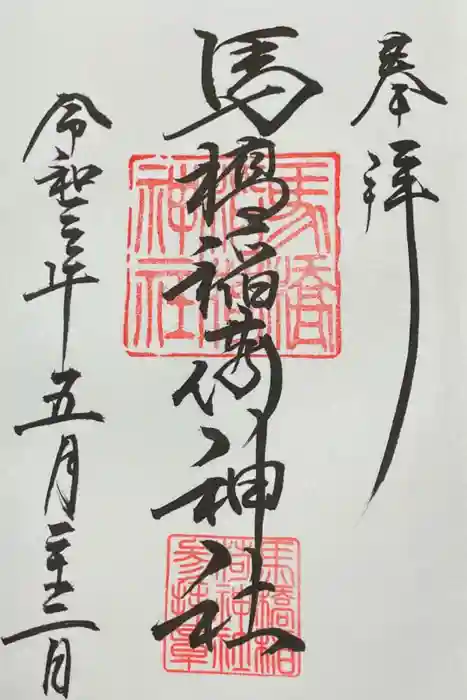 奉拝
馬橋稲荷神社
令和三年五月二十二日
馬橋
稲荷
神社
馬橋稲
荷神社
参拝章